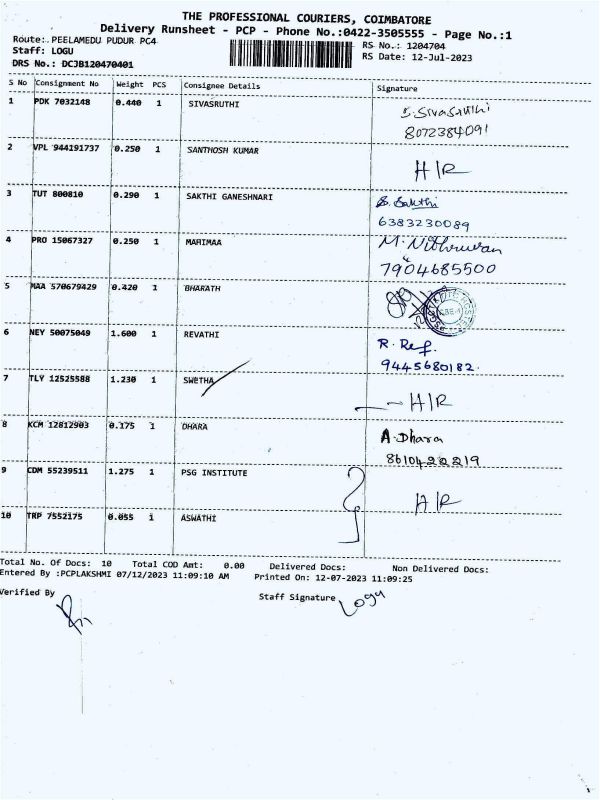 THE PROFESSIONAL COURIERS, COIMBATORE
Delivery Runsheet - PCP - Phone No.:0422-3505555 - Page No.:1
Route: PEELAMEDU PUDUR PC4
RS No.: 1204704
Staff: LOGU
RS Date: 12-Jul-2023
DRS No.: DCJB120470401
S No Consignment No Weight PCS Consignee Details Signature
1 PDK 7032148 0.440 1 SIVASRUTHI S. Sivasruthi
8072384091
2 VPL 944191737 0.250 1 SANTHOSH KUMAR H/R
3 TUT 800810 0.290 1 SAKTHI GANESHNARI S. Sakthi
6383230089
4 PRO 15067327 0.250 1 MAHIMAA M.
7904685500
5 MAA 570679429 0.420 1 BHARATH
6 NEY 50075049 1.600 1 REVATHI R. Ref.
9445680182.
7 TLY 12525588 1.230 1 SWETHA H/R
8 KCM 12812903 0.175 1 DHARA A. Dhara
8610420219
9 CDM 55239511 1.275 1 PSG INSTITUTE H/R
10 TRP 7552175 0.055 1 ASWATHI
Total No. Of Docs: 10 Total COD Amt: 0.00 Delivered Docs: Non Delivered Docs:
Entered By :PCPLAKSHMI 07/12/2023 11:09:10 AM Printed On: 12-07-2023 11:09:25
Verified By Staff Signature Logu